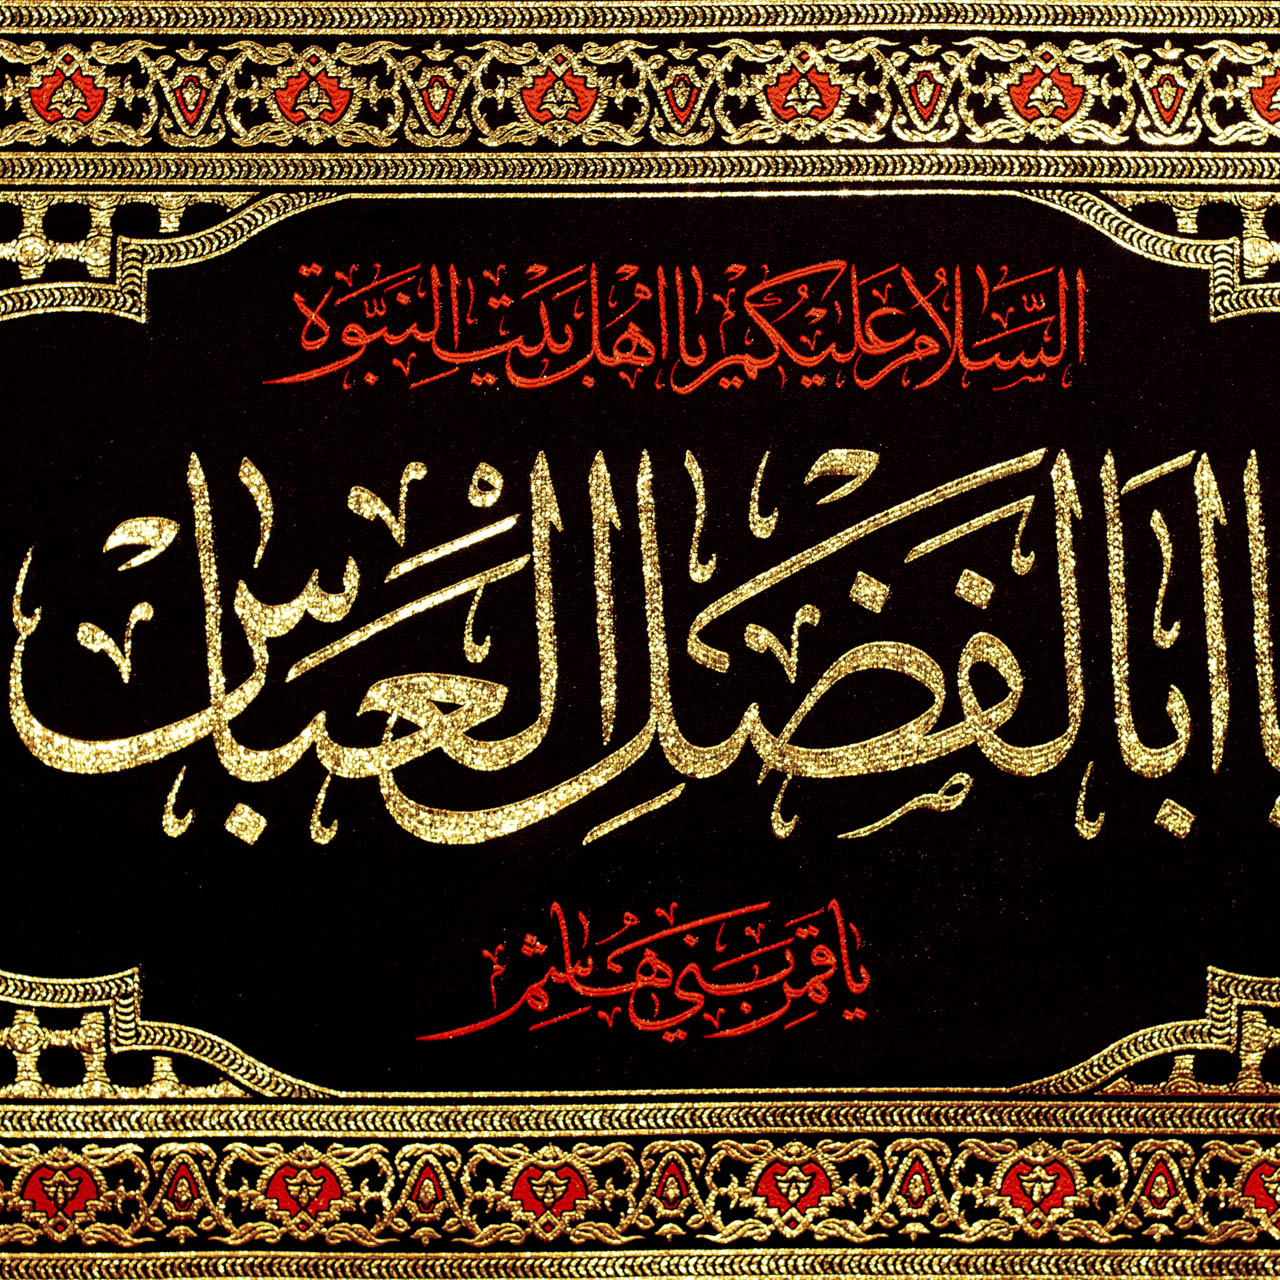 السَّلَامُ عَلَيْكُمْ يَا اَهْلَ بَيْتِ النَّبُوَّة
يا اَبَا الْفَضْلِ الْعَبَّاسْ
يا قَمَرَ بَنِي هَاشِمْ